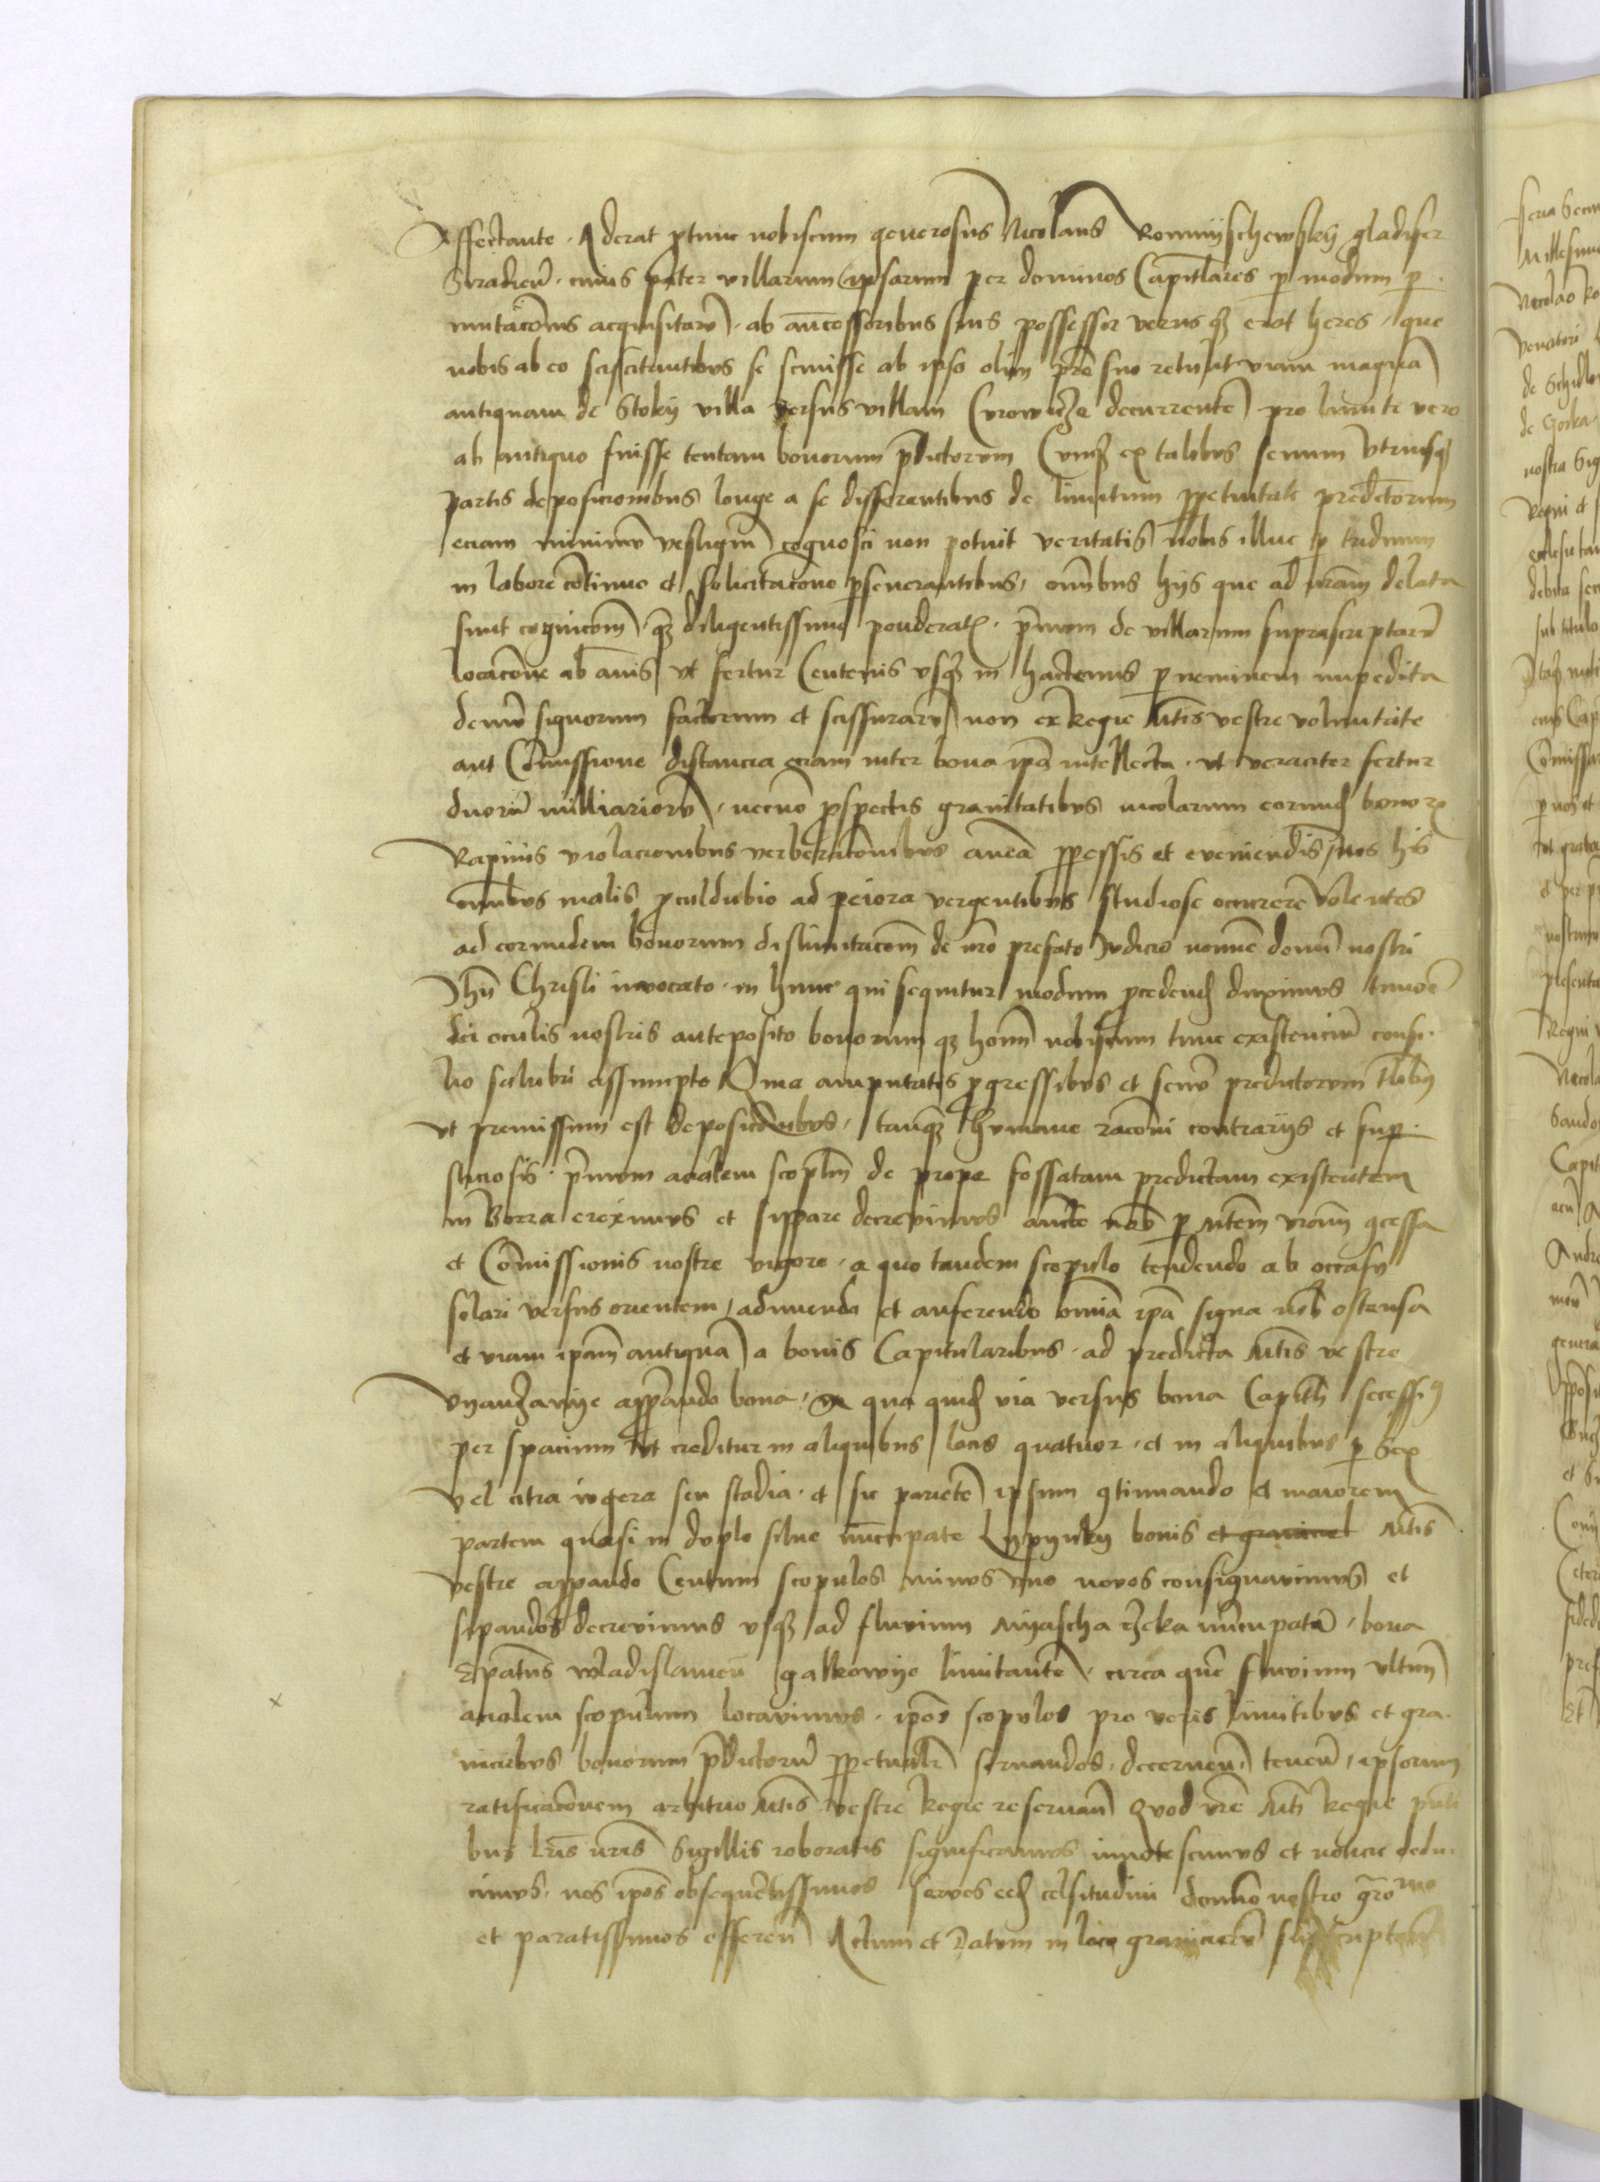 Affectante. Aderat ptunc nobiscum generosus Nicolaus Romiyschewsky gladifer
Siradien. cuius pater villarum ipsarum per dominos Capitlares p modum p
mutacois acquisitaru, ab ancessoribus suis possessor verus qz erat heres, que
nobis ab eo sciscitantibus se scivisse ab ipso olim pre suo retulit viam magna
antiquam de Stoky villa versus villam decurrente pro limite vero
ab antiquo fuisse tentam bonorum pdictorum Cumqz ex talibus senum utriusqz
partis deposicionibus longe a se differentibus de limitum ppetuitate predictorum
eciam minimu vestigiu cognosci non potuit veritatis nobis illuc p triduum
in labore cotinuo et solicitacone pseverantibus, omibus hijs que ad nram delata
sunt cognicom, qz diligentissime ponderat. pmum de villarum suprascriptaru
locacone ab annis ut fertur Centenis usqz in hactenus p neminem impedita
demu signorum factorum et scissuraru non ex Regie Mtis vestre voluntate
aut Comissione distancia eciam inter bona ipa intellecta. ut veraciter fertur
duoru milliarioru, necno pspectis gravitatibus incolarum eorund bonor
Rapinis violacionibus verberaconibus antea ppessis et eveniendis, nos his
omibus malis pculdubio ad peiora vergentibus studiose occurrere Volentes
ad eorundem bonorum dislimitacom de nro prefato Judicio nomie domi nostri
Jhu Christi invocato. in hunc qui sequitur modum pcedend duximus timore
dei oculis nostris anteposito bonorum qz homi nobiscum tunc existenciu consi
lio salubri assumpto Quia amputatis pgressibus et senu predictorum
ut premissum est deposiconibus, tanqz humane racioni contrarijs et sup
sticiosis. pmum acialem scoplm de prope fossatam predictam existentem
in Borra ereximus et sippare decrevimus aucte nob p Mtem vram gcessa
et Comissionis nostre vigore. a quo tandem scopulo tendendo ab occasu
solari versus orientem, admendo et auferendo omia ipa signa nob ostensa
et viam ipam antiqua a bonis Capitularibus. ad predicta Mtis vestre
appando bona. qua quid via versus bona Capitli secessim
per spacium ut creditur in aliquibus locis quatuor. et in aliquibus p Sex
vel citra iugera seu stadia. et sic pariete ipsum gtinuando et maiorem
partem quasi in duplo silve nuncupate Lypynky bonis et granicie Mtis
vestre appando Centum scopulos minus uno novos consignavimus et
sipandos decrevimus usqz ad fluvium Myascha rzeka nuncupatu, bona
Epatus Wladislavien galkowije limitante, circa que fluvium ultim
acialem scopulum locavimus. ipos scopulos pro veris limitibus et gra
niciebus bonorum pdictoru ppetualr servandos. decernen. tenen, ipsorum
ratificaconem arbitrio Mtis vestre Regie reservan Quod vre Mti Regie pnti
bus lris nris Sigillis roboratis significamus innotescimus et noticie dedu
cimus. nos ipos obsequetissimos servos eid celsitudini domio nostro gramo
et paratissimos offeren Actum et Datum in loco granicieru